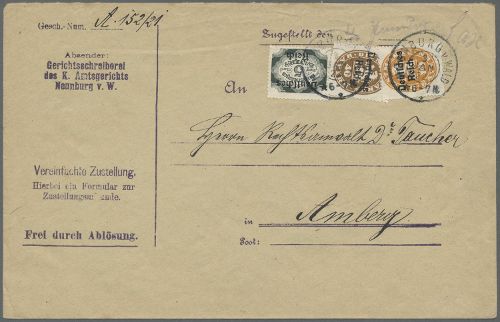 Gesch.-Num. A. 152/21.
Zugestellt den
Absender:
Gerichtsschreiberei
des K. Amtsgerichts
Neunburg v. W.
An
Deutsches Reich
Herrn Rechtsanwalt Dr. Taucher
Vereinfachte Zustellung.
Hierbei ein Formular zur
Zustellungsurkunde.
in Amberg.
Frei durch Ablösung.
Post: